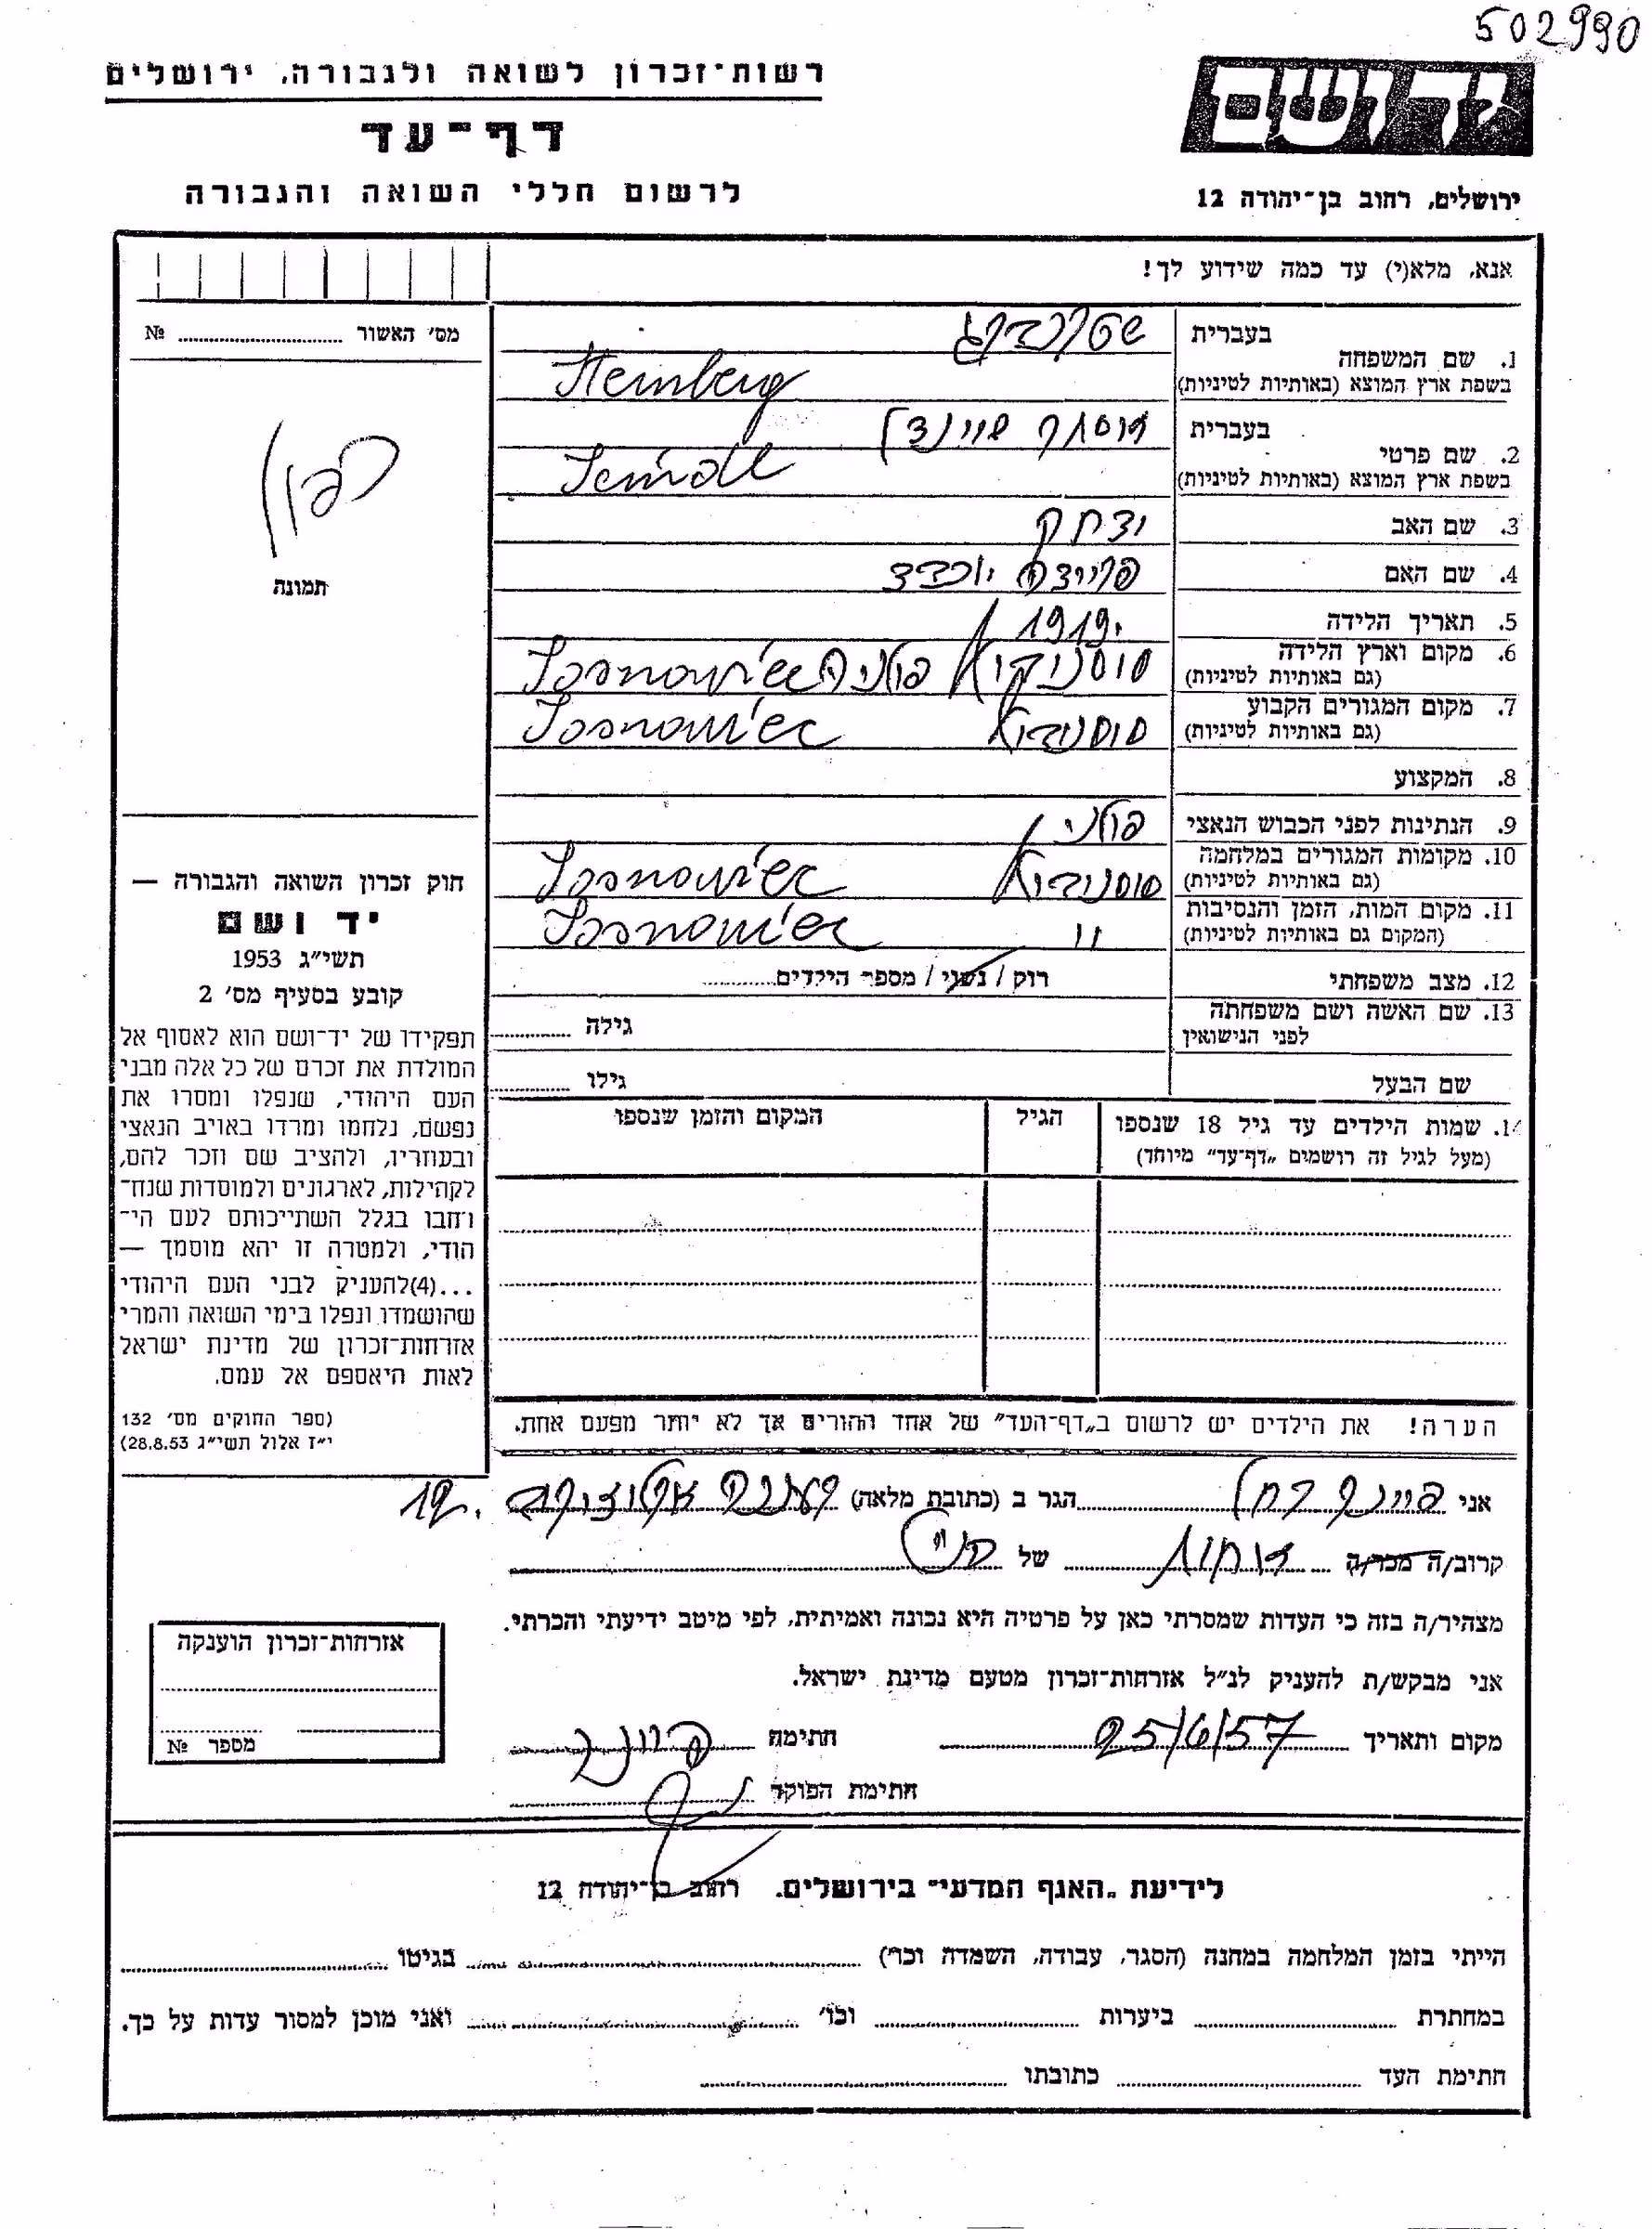 502990
רשות־זכרון לשואה ולגבורה, ירושלים
יד ושם
דף־עד
לרשום חללי השואה והגבורה
ירושלים, רחוב בן־יהודה 12
אנא, מלא(י) עד כמה שידוע לך!
מס׳ האשור № 
תמונה
1. שם המשפחה
בעברית
בשפת ארץ המוצא (באותיות לטיניות)
Sternberg
2. שם פרטי
בעברית
בשפת ארץ המוצא (באותיות לטיניות)
3. שם האב יצחק
4. שם האם
5. תאריך הלידה 1919
6. מקום וארץ הלידה
(גם באותיות לטיניות)
פולניה Sosnowiec
7. מקום המגורים הקבוע
(גם באותיות לטיניות)
Sosnowiec
8. המקצוע
9. הנתינות לפני הכבוש הנאצי פולני
10. מקומות המגורים במלחמה
(גם באותיות לטיניות)
Sosnowiec
11. מקום המות, הזמן והנסיבות
(המקום גם באותיות לטיניות)
״ Sosnowiec
12. מצב משפחתי רוק / נשוי / מספר הילדים
13. שם האשה ושם משפחתה
לפני הנישואין
גילה
שם הבעל גילו
14. שמות הילדים עד גיל 18 שנספו
(מעל לגיל זה רושמים „דף־עד״ מיוחד)
הגיל
המקום והזמן שנספו
חוק זכרון השואה והגבורה —
יד ושם
תשי״ג 1953
קובע בסעיף מס׳ 2
תפקידו של יד־ושם הוא לאסוף אל
המולדת את זכרם של כל אלה מבני
העם היהודי, שנפלו ומסרו את
נפשם, נלחמו ומרדו באויב הנאצי
ובעוזריו, ולהציב שם וזכר להם,
לקהילות, לארגונים ולמוסדות שנח־
רבו בגלל השתייכותם לעם הי־
הודי, ולמטרה זו יהא מוסמך —
...(4)להעניק לבני העם היהודי
שהושמדו ונפלו בימי השואה והמרי
אזרחות־זכרון של מדינת ישראל
לאות היאספם אל עמם.
(ספר החוקים מס׳ 132
י״ז אלול תשי״ג 28.8.53)
הערה! את הילדים יש לרשום ב„דף־העד״ של אחד ההורים אך לא יותר מפעם אחת.
אני רחל הגר ב (כתובת מלאה)
קרוב/ה מכר/ה אחות של הנ״ל
מצהיר/ה בזה כי העדות שמסרתי כאן על פרטיה היא נכונה ואמיתית, לפי מיטב ידיעתי והכרתי.
אני מבקש/ת להעניק לנ״ל אזרחות־זכרון מטעם מדינת ישראל.
מקום ותאריך 25/6/57 חתימה
חתימת הפוקד
אזרחות־זכרון הוענקה
מספר №
לידיעת „האגף המדעי״ בירושלים, רחוב בן־יהודה 12
הייתי בזמן המלחמה במחנה (הסגר, עבודה, השמדה וכו׳) בגיטו
במחתרת ביערות וכו׳ ואני מוכן למסור עדות על כך.
חתימת העד כתובתו